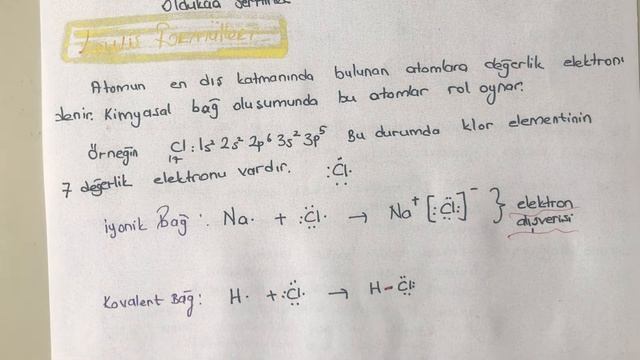 Oldukça serttirler
Lewis formülleri
Atomun en dış katmanında bulunan atomlara değerlik elektronu
denir. Kimyasal bağ oluşumunda bu atomlar rol oynar.
Örneğin ₁₇Cl: 1s² 2s² 2p⁶ 3s² 3p⁵ Bu durumda klor elementinin
7 değerlik elektronu vardır. :C̈l·
iyonik Bağ: Na· + :C̈l· → Na⁺ [:C̈l:]⁻ } elektron
alışverişi
Kovalent Bağ: H· + :C̈l· → H-C̈l: